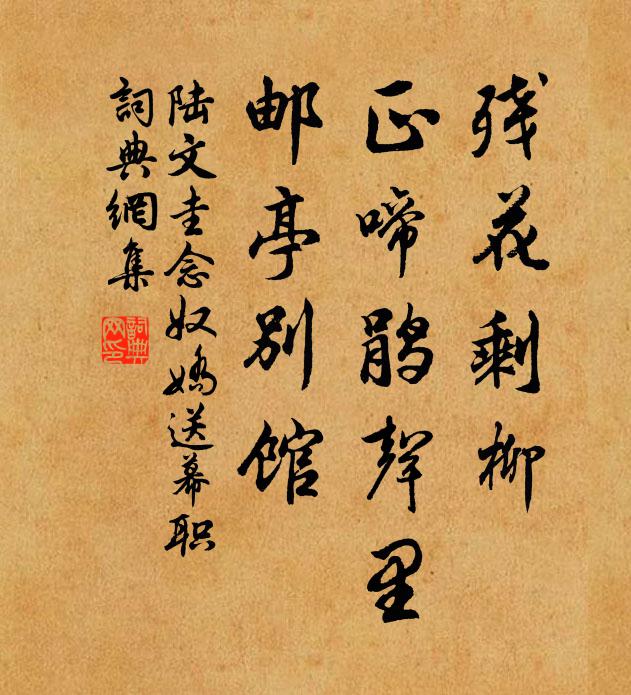 残花剩柳
正啼鹃聲里
邮亭別馆
陆文圭念奴娇送幕职
詞典網集
詞典网印